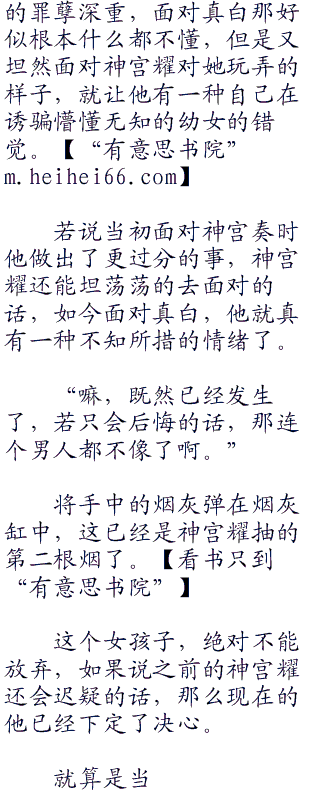 的罪孽深重，面对真白那好
似根本什么都不懂，但是又
坦然面对神宫耀对她玩弄的
样子，就让他有一种自己在
诱骗懵懂无知的幼女的错
觉。【“有意思书院”
m.heihei66.com】
若说当初面对神宫奏时
他做出了更过分的事，神宫
耀还能坦荡荡的去面对的
话，如今面对真白，他就真
有一种不知所措的情绪了。
“嘛，既然已经发生
了，若只会后悔的话，那连
个男人都不像了啊。”
将手中的烟灰弹在烟灰
缸中，这已经是神宫耀抽的
第二根烟了。【看书只到
“有意思书院”】
这个女孩子，绝对不能
放弃，如果说之前的神宫耀
还会迟疑的话，那么现在的
他已经下定了决心。
就算是当